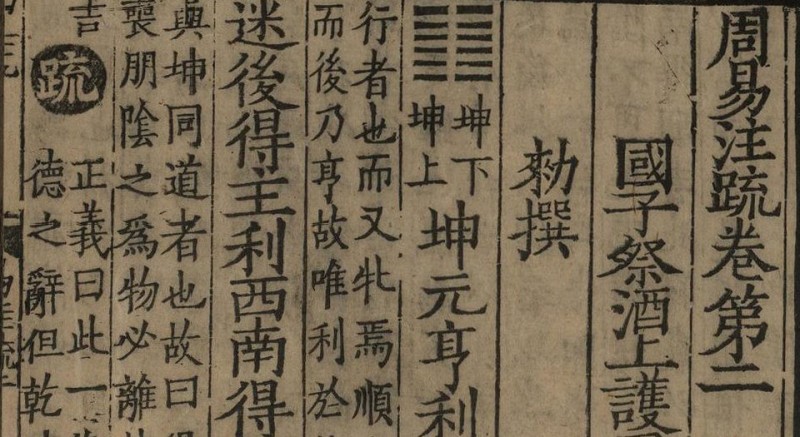 周易注疏卷第二
國子祭酒上護
勑撰
䷁坤下
坤上
坤元亨利
行者也而又牝焉順
而後乃亨故唯利於
迷後得主利西南得
與坤同道者也故曰
喪朋陰之爲物必離
吉
疏
正義曰此一
德之辭但乾